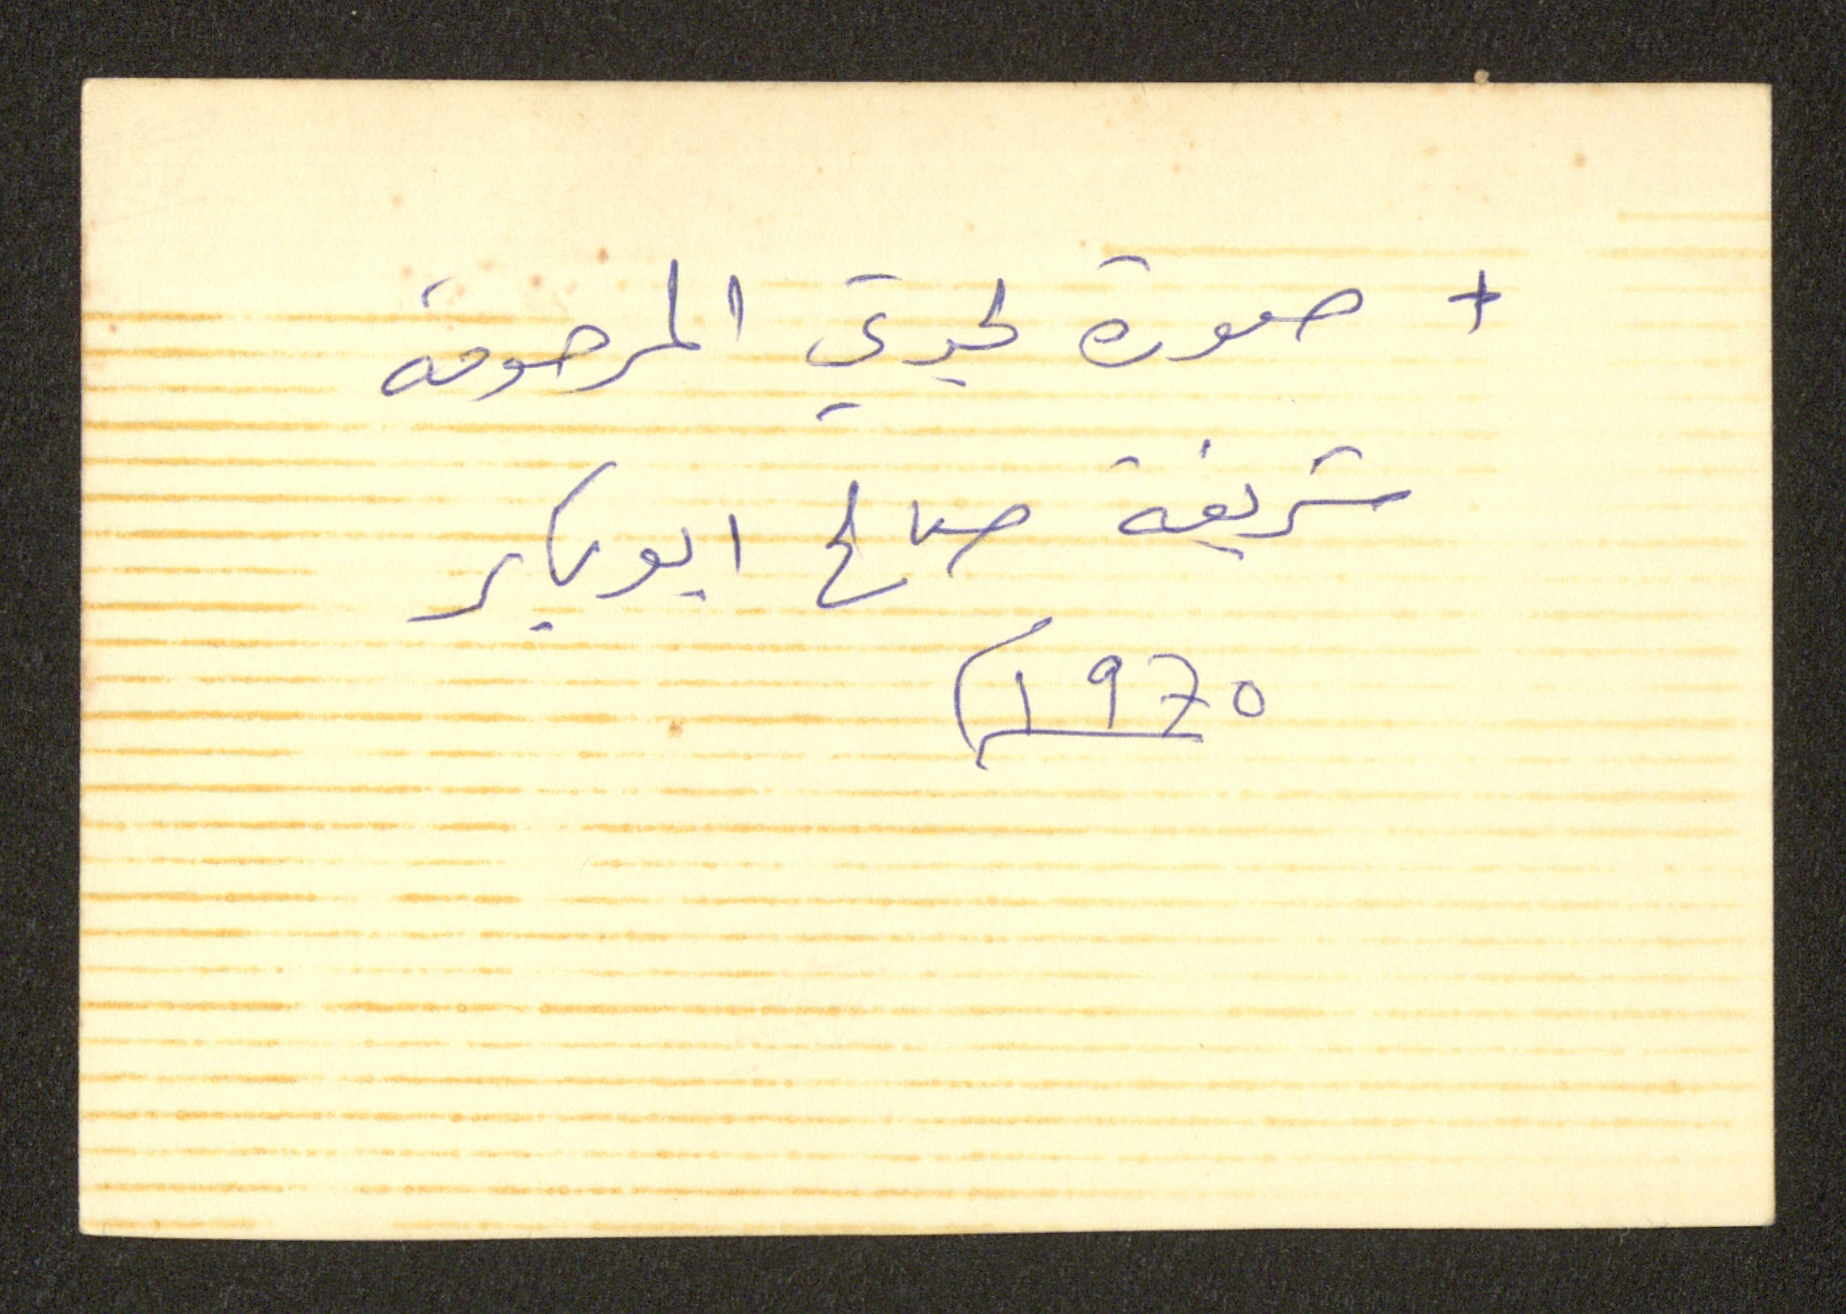 + صورة لجدتي المرحومة
شريفة صالح ابو بكر
1970